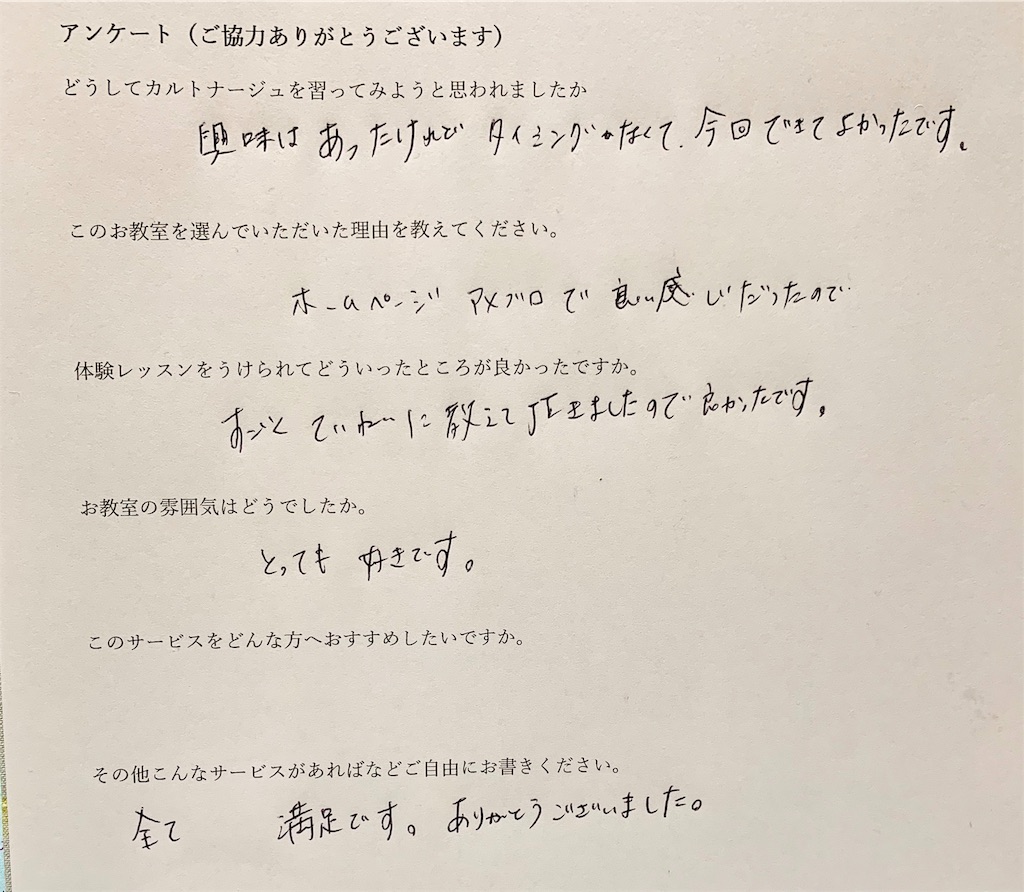 アンケート（ご協力ありがとうございます）
どうしてカルトナージュを習ってみようと思われましたか
興味は あったけれど タイミングがなくて、今回できてよかったです。
このお教室を選んでいただいた理由を教えてください。
ホームページ アメブロで 良い感じだったので
体験レッスンをうけられてどういったところが良かったですか。
ていねいに 教えて頂きましたので 良かったです。
お教室の雰囲気はどうでしたか。
とっても 好きです。
このサービスをどんな方へおすすめしたいですか。
その他こんなサービスがあればなどご自由にお書きください。
全て 満足です。ありがとうございました。